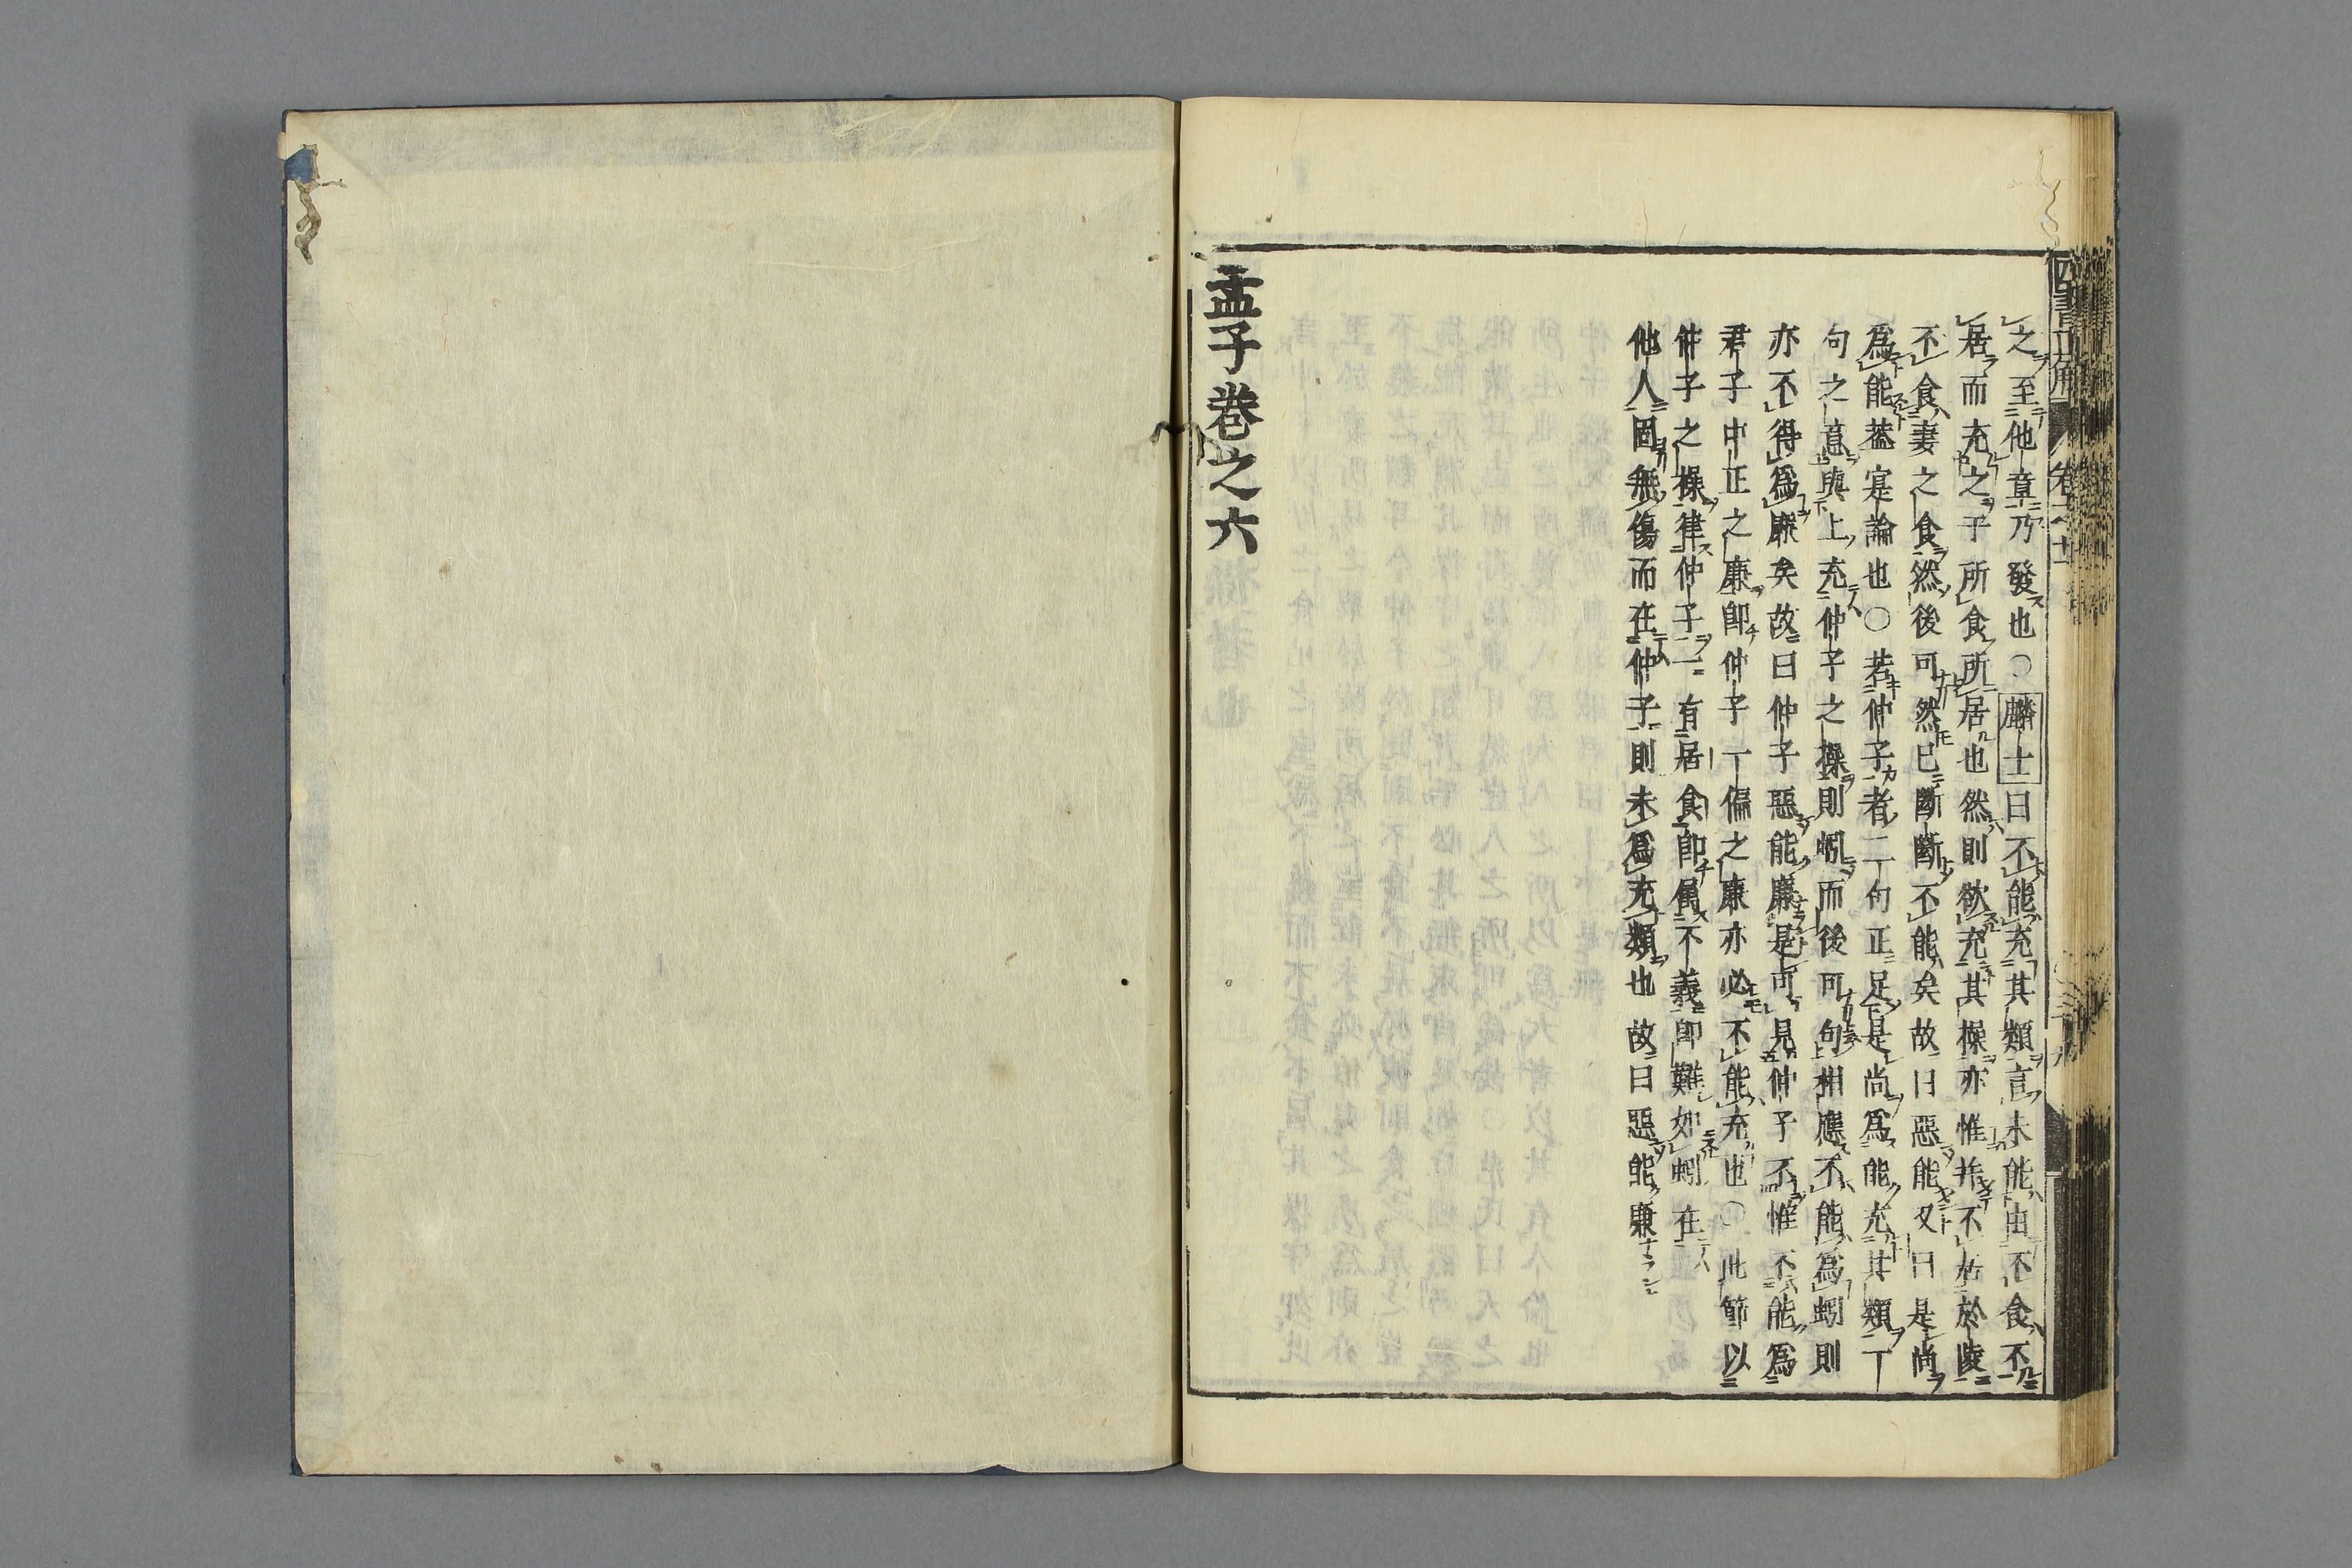 之至他章乃發也○麟士曰不能充其類言未能由不食不
居而充之于所食所居也然則欲充其操亦惟并不居於陵
不食妻之食然後可然已斷斷不能矣故曰惡能又曰是尚
爲能葢寔論也○若仲子者二丁句正足是尚爲能充其類丁
句之意與上充仲子之操則蚓而後可句相應不能爲蚓則
亦不得爲廉矣故曰仲子惡能廉是可見仲子不惟不能爲
君子中正之廉即仲子一偏之廉亦必不能充也○此節以
仲子之操律仲子一有居食即屬不義即難如蚓在
他人固無傷而在仲子則未爲充類也故曰惡能廉
孟子卷之六